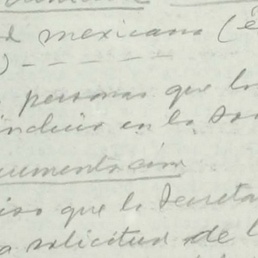 d mexicano (é
) - - - - - -
personas que lo
incluir en la
cumentación
que la Secreta
a solicitud de l